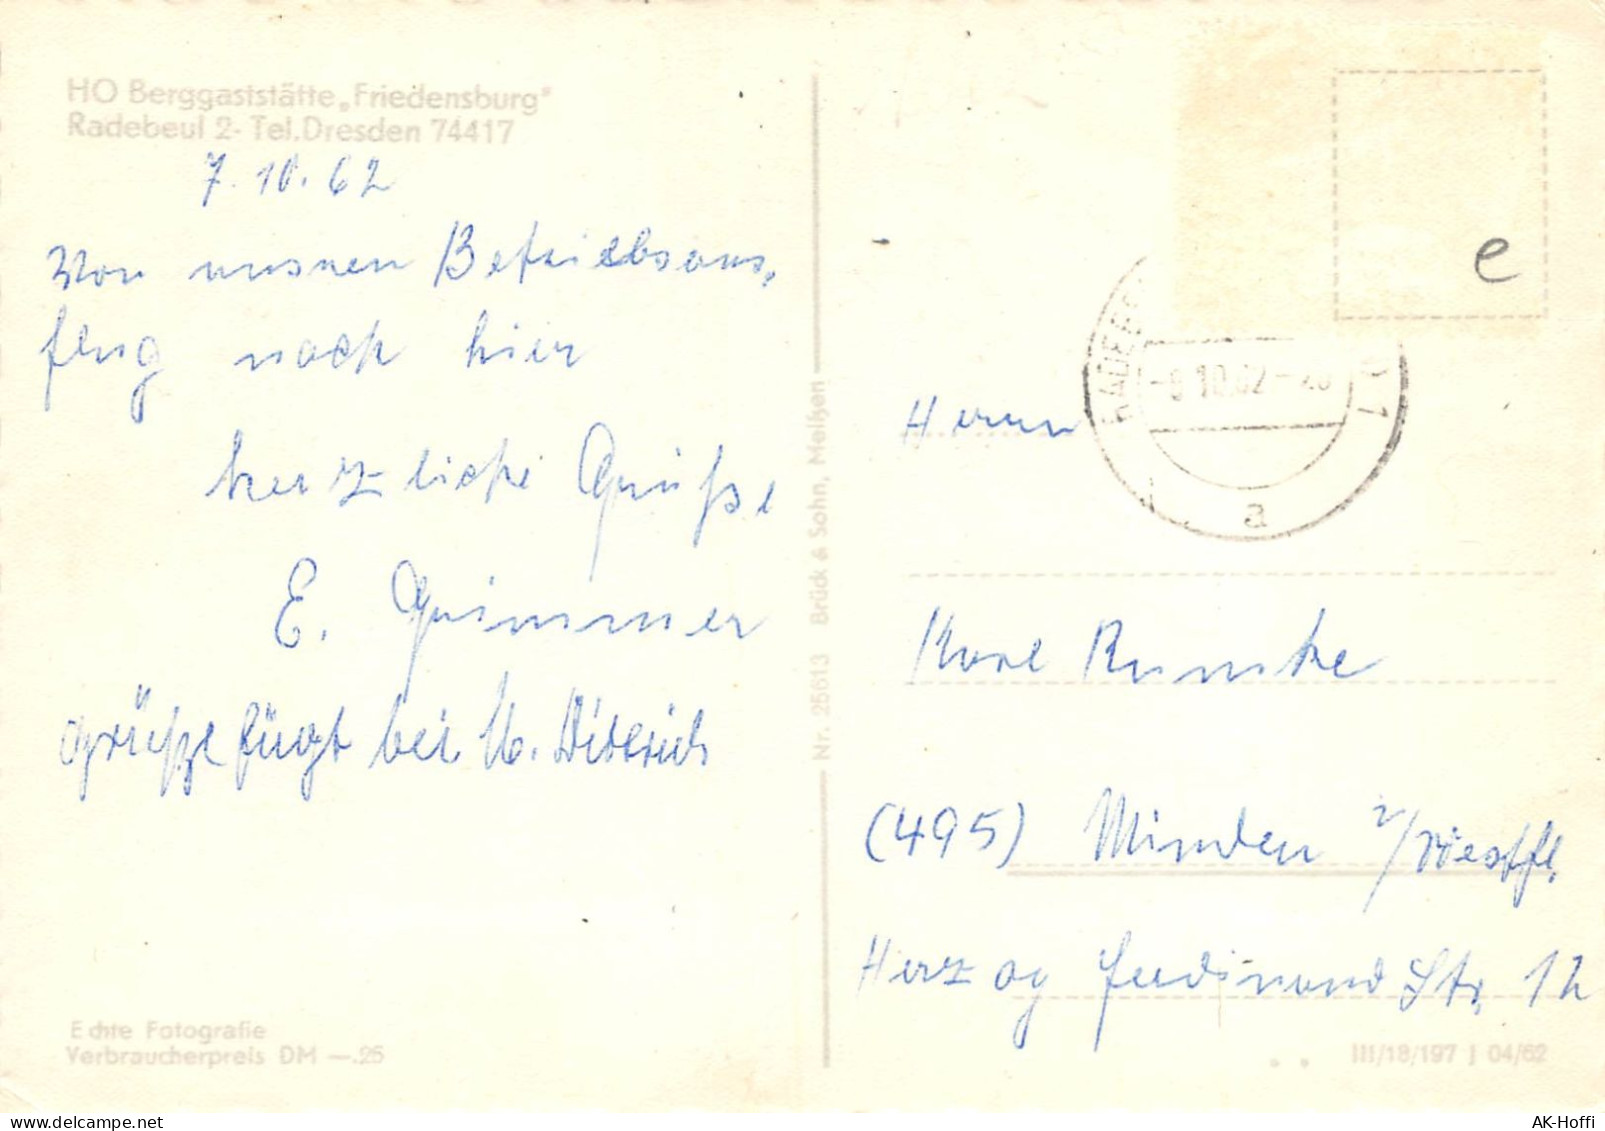 HO Berggaststätte „Friedensburg"
Radebeul 2- Tel. Dresden 74417
7.10.62
Von unsren Betriebsaus-
flug nach hier
herzliche Grüße
E. Grimmer
Grüße fügt bei U. Dittrich
Echte Fotografie
Verbraucherpreis DM —.25
Nr. 25613 Brück & Sohn, Meißen
e
-9.10.62-
a
Herrn
Karl Rumke
(495) Minden i/Westfl.
Herzog Ferdinand Str. 12
III/18/197 J 04/62
AK-Hoffi